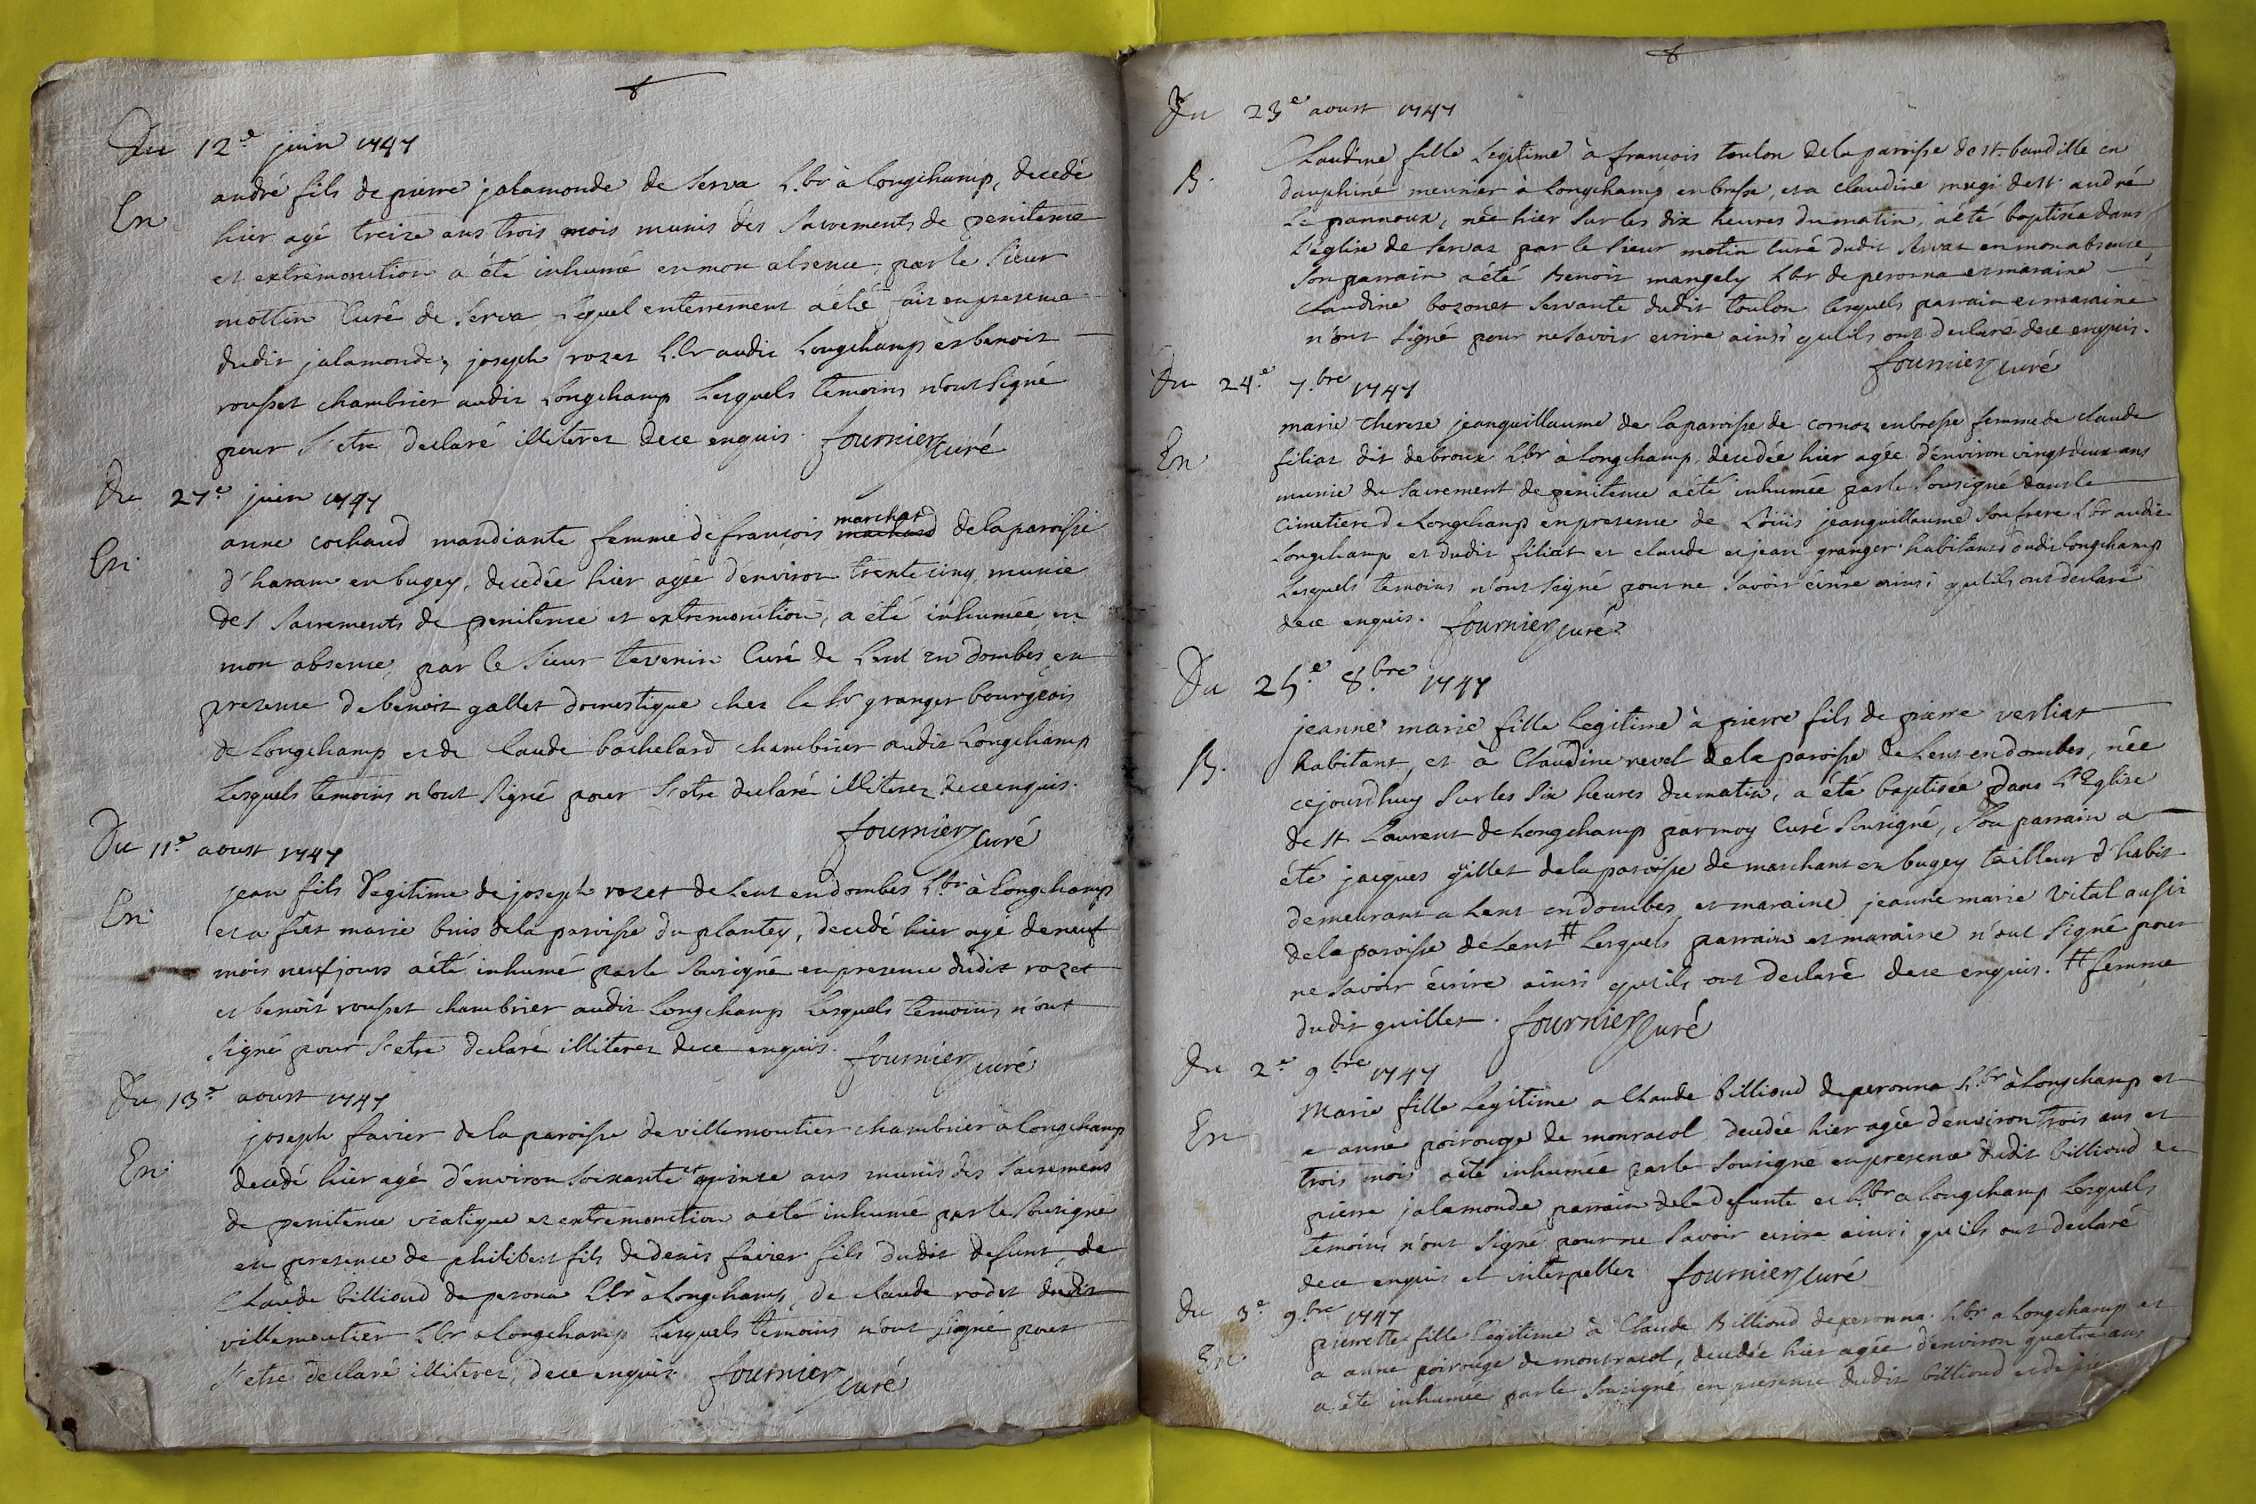 Du 12.e juin 1747
En
andré fils de pierre jalamonde de Serva l.br à Longchamp, decedé
hier agé treize ans trois mois munis des Sacrements de penitence
et extrêmonction a été inhumé en mon absence par le Sieur
mottin Curé de Serva, lequel enterrement a été fait en presence
dudit jalamonde, joseph rozet l.br audit Longchamp et benoit
rousset chambrier audit Longchamp Lesquels temoins n'ont Signé
pour S'etre declaré illiterez de ce enquis. fournier curé
Du 27.e juin 1747
En.
anne cochaud mandiante femme de françois marchat
marchand de la paroisse
d'haram en bugey, decedée hier agée d'environ trente cinq munie
des Sacrements de penitence et extremonction, a été inhumée en
mon absence, par le Sieur tevenin Curé de Lent en dombes en
presence de benoit gallet domestique chez le Sr granger bourgeois
de Longchamp et de Claude bachelard chambrier audit Longchamp
Lesquels temoins n'ont Signé pour S'etre declaré illiterez de ce enquis.
fournier curé
Du 11.e aoust 1747
En.
jean fils Legitime de joseph rozet de Lent en dombes L.br à Longchamp
et a marie buis de la paroisse du plantey, decedé hier agé de neuf
mois neuf jours a été inhumé par le Sousigné en presence dudit rozet
et benoit rousset chambrier audit Longchamp Lesquels temoins n'ont
Signé pour S'etre declaré illiterez de ce enquis. fournier curé
Du 13.e aoust 1747
En.
joseph favier de la paroisse de villemoutier chambrier à Longchamp
decedé hier agé d'environ Soixante et quinze ans munis des Sacremens
de penitence viatique et extremonction a été inhumé par le Sousigné
en presence de philibert fils de denis favier fils dudit defunt, de
Claude billioud de perona l.br à Longchamp, de claude rodet dudit
villemoutier L.br a Longchamp Lesquels temoins n'ont signé pour
S'etre declaré illiterez, de ce enquis fournier curé
Du 23.e aoust 1747
B.
Claudine fille Legitime à francois toulon de la paroisse de st. baudille en
dauphiné meunier à Longchamp en bresse, et a claudine mugi de st. andré
Le pannoux, née hier Sur les dix heures du matin, a été baptisée dans
L'église de Servas par le Sieur motin curé dudit Servas en mon absence
Son parrain a été Benoit mangely L.br de perosna et maraine
claudine bozonet Servante dudit toulon lesquels parrain et maraine
n'ont Signé pour ne Savoir ecrire ainsi qu'ils ont declaré de ce enquis.
fournier curé
Du 24.e 7.bre 1747
En
marie therese jeanguillaume de la paroisse de cornoz en bresse femme de claude
filiat dit debroux l.br à Longchamp, decedée hier agée d'environ vingt deux ans
munie du Sacrement de penitence a été inhumée par le Sousigné dans le
Cimetiere de Longchamp en presence de Loüis jeanguillaume Son frere L.br audit
Longchamp et dudit filiat et claude et jean granger habitants dudit Longchamp
Lesquels temoins n'ont Signé pour ne Savoir écrire ainsi qu'ils ont declaré
de ce enquis. fournier curé
Du 25.e 8.bre 1747
B.
jeanne marie fille Legitime à pierre fils de pierre verliat
habitant, et à Claudine revel de la paroisse de Lent en dombes, née
cejourd'huy Sur les Six heures du matin, a été baptisée dans L'Eglise
de St Laurent de Longchamp par moy Curé Sousigné, Son parrain a
été jacques gillet de la paroisse de marchant en bugey tailleur d'habit
demeurant a Lent en dombes et maraine jeanne marie vital aussi
de la paroisse de Lent # Lesquels parrain et maraine n'ont Signé pour
ne Savoir écrire ainsi qu'ils ont declaré de ce enquis. # femme
dudit guillet. fournier curé
Du 2.e 9.bre 1747
En
Marie fille Legitime a Claude billioud de peronna L.br à Longchamp et
a anne poirouge de monracol decedée hier agée d'environ trois ans et
trois mois a été inhumée par le Sousigné en presence dudit billioud et
pierre jalamonde parrain de la defunte et L.br a Longchamp Lesquels
temoins n'ont Signé pour ne Savoir ecrire ainsi qu'ils ont declaré
de ce enquis et interpellez fournier curé
Du 3.e 9.bre 1747
En.
pierrette fille Legitime à Claude Billioud de peronna L.br a Longchamp et
a anne poirouge de montracol, decedée hier agée d'environ quatre ans
a été inhumée par le Sousigné en presence dudit billioud et de